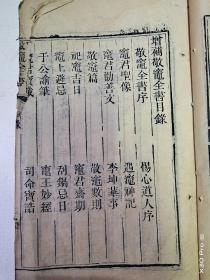 增補敬竈全書目錄
敬竈全書序 惕心道人序
竈君聖像 遇竈神記
竈君勸善文 李坤華事
敬竈篇 敬竈數則
祀竈吉日 竈君齋期
竈上避忌 刮鍋忌日
于公諭筆 竈王妙經
司命寶誥
敬竈全書